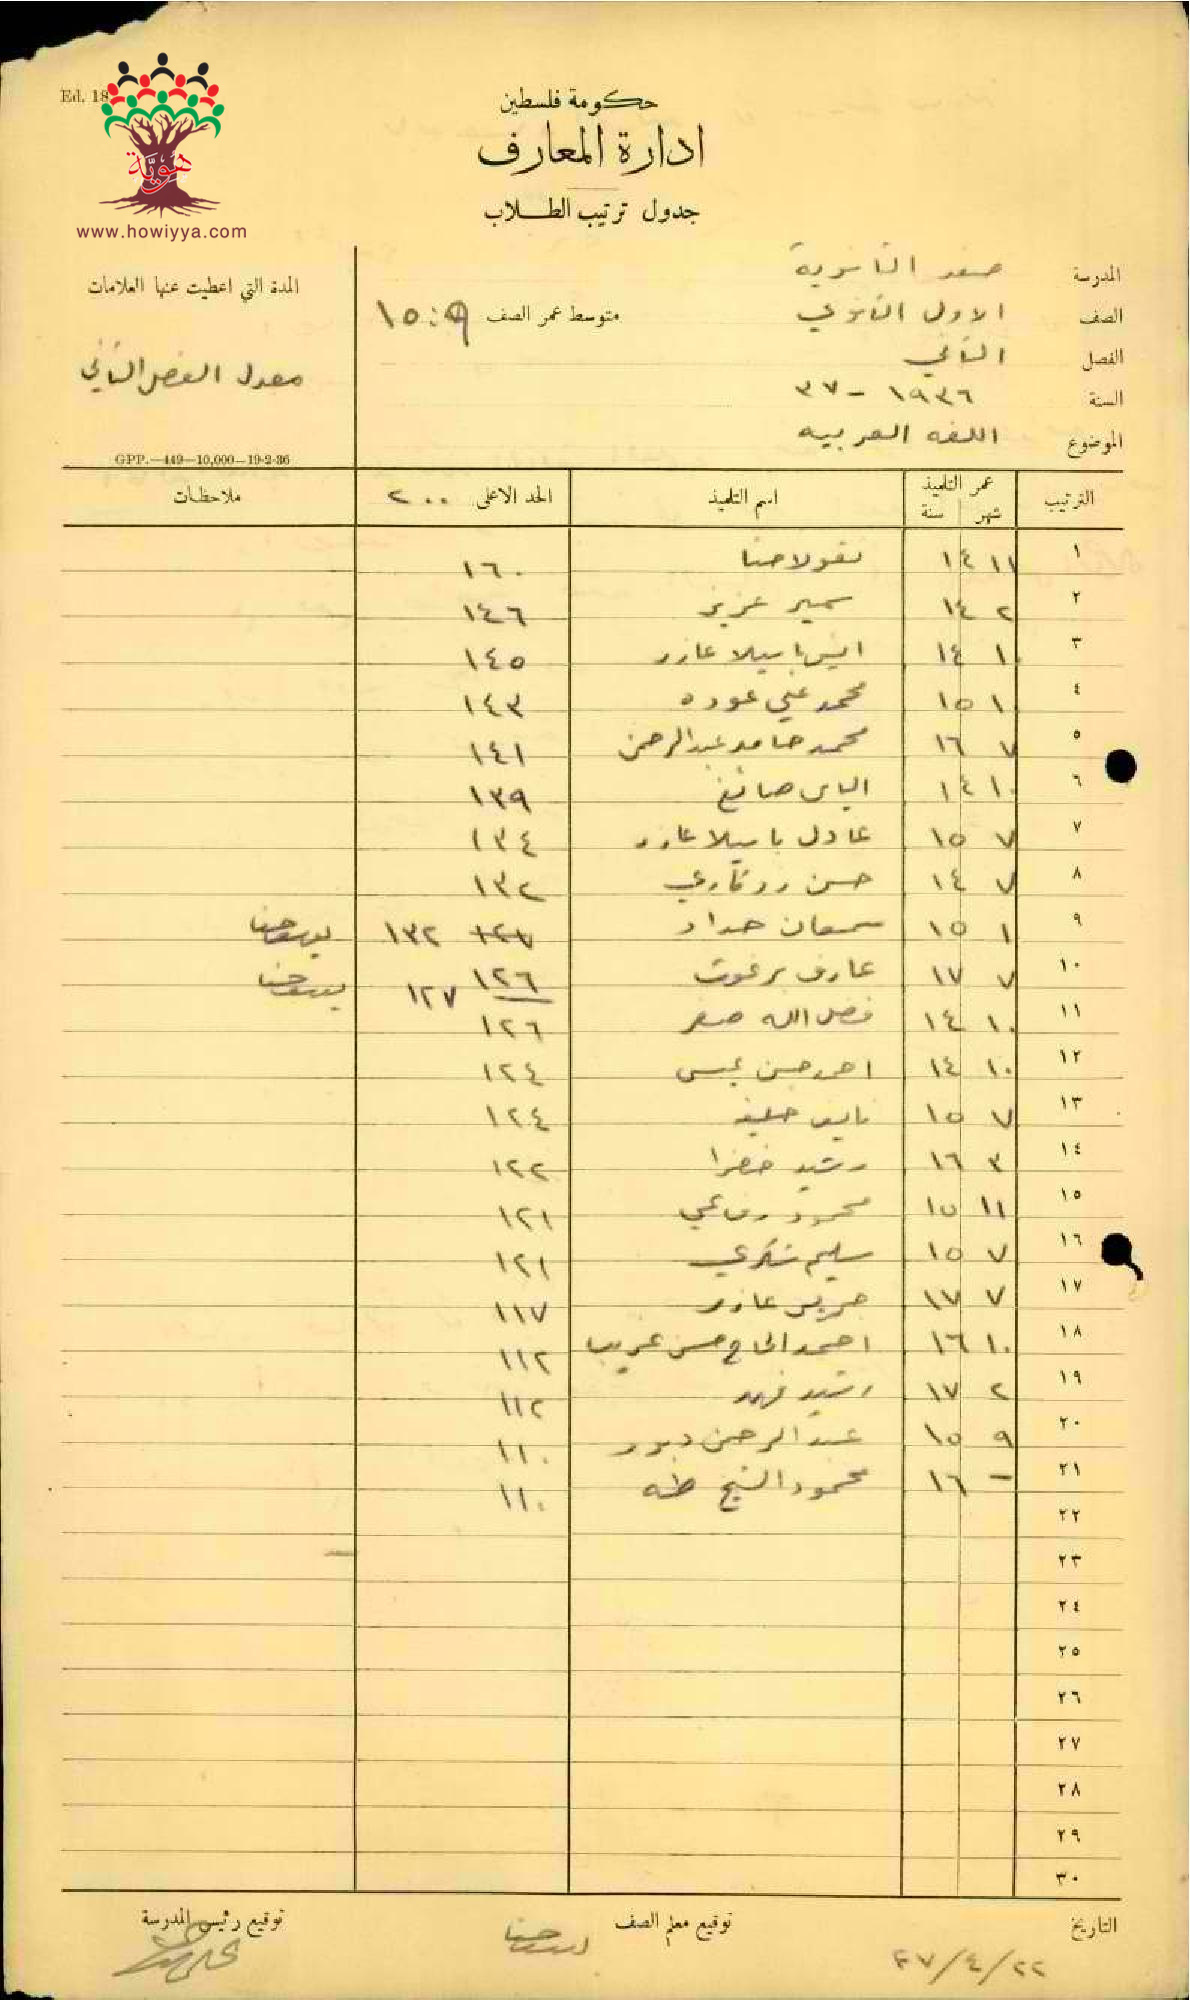 Ed. 18
هويّة
www.howiyya.com
حكومة فلسطين
ادارة المعارف
جدول ترتيب الطلاب
المدرسة صفد الثانوية
الصف الاول الثانوي متوسط عمر الصف ١٥:٩
الفصل الثاني
السنة ١٩٣٦ - ٣٧
الموضوع اللغه العربيه
المدة التي اعطيت عنها العلامات
معدل الفصل الثاني
GPP.—449—10,000—19-2-36
الترتيب عمر التلميذ شهر سنة اسم التلميذ الحد الاعلى ٢٠٠ ملاحظات
١ ١١ ١٤ نقولا حنا ١٦٠
٢ ٢ ١٤ سمير عزيز ١٤٦
٣ ١٠ ١٤ انيس باسيلا عازر ١٤٥
٤ ١ ١٥ محمد علي عوده ١٤٣
٥ ٧ ١٦ محمد حامد عبدالرحمن ١٤١
٦ ١٠ ١٤ الياس صائغ ١٣٩
٧ ٧ ١٥ عادل باسيلا عازر ١٣٤
٨ ٧ ١٤ حسن ١٣٢
٩ ١ ١٥ سمعان حداد ١٢٧ ١٣٢
١٠ ٧ ١٧ عارف برغوث ١٢٦ ١٢٧
١١ ١٠ ١٤ فضل الله صفر ١٢٦
١٢ ١٠ ١٤ احمد حسن ١٢٤
١٣ ٧ ١٥ نايف خليفه ١٢٤
١٤ ٣ ١٦ رشيد خضرا ١٢٢
١٥ ١١ ١٥ محمود رفاعي ١٢١
١٦ ٧ ١٥ سليم شكري ١٢١
١٧ ٧ ١٧ جريس عازر ١١٧
١٨ ١٠ ١٦ احمد الحاج حسن غريب ١١٢
١٩ ٢ ١٧ رشيد فهد ١١٢
٢٠ ٩ ١٥ عبد الرحمن دبور ١١٠
٢١ - ١٦ محمود الشيخ طه ١١٠
٢٢
٢٣
٢٤
٢٥
٢٦
٢٧
٢٨
٢٩
٣٠
التاريخ توقيع معلم الصف توقيع رئيس المدرسة
٢٢/٤/٣٧